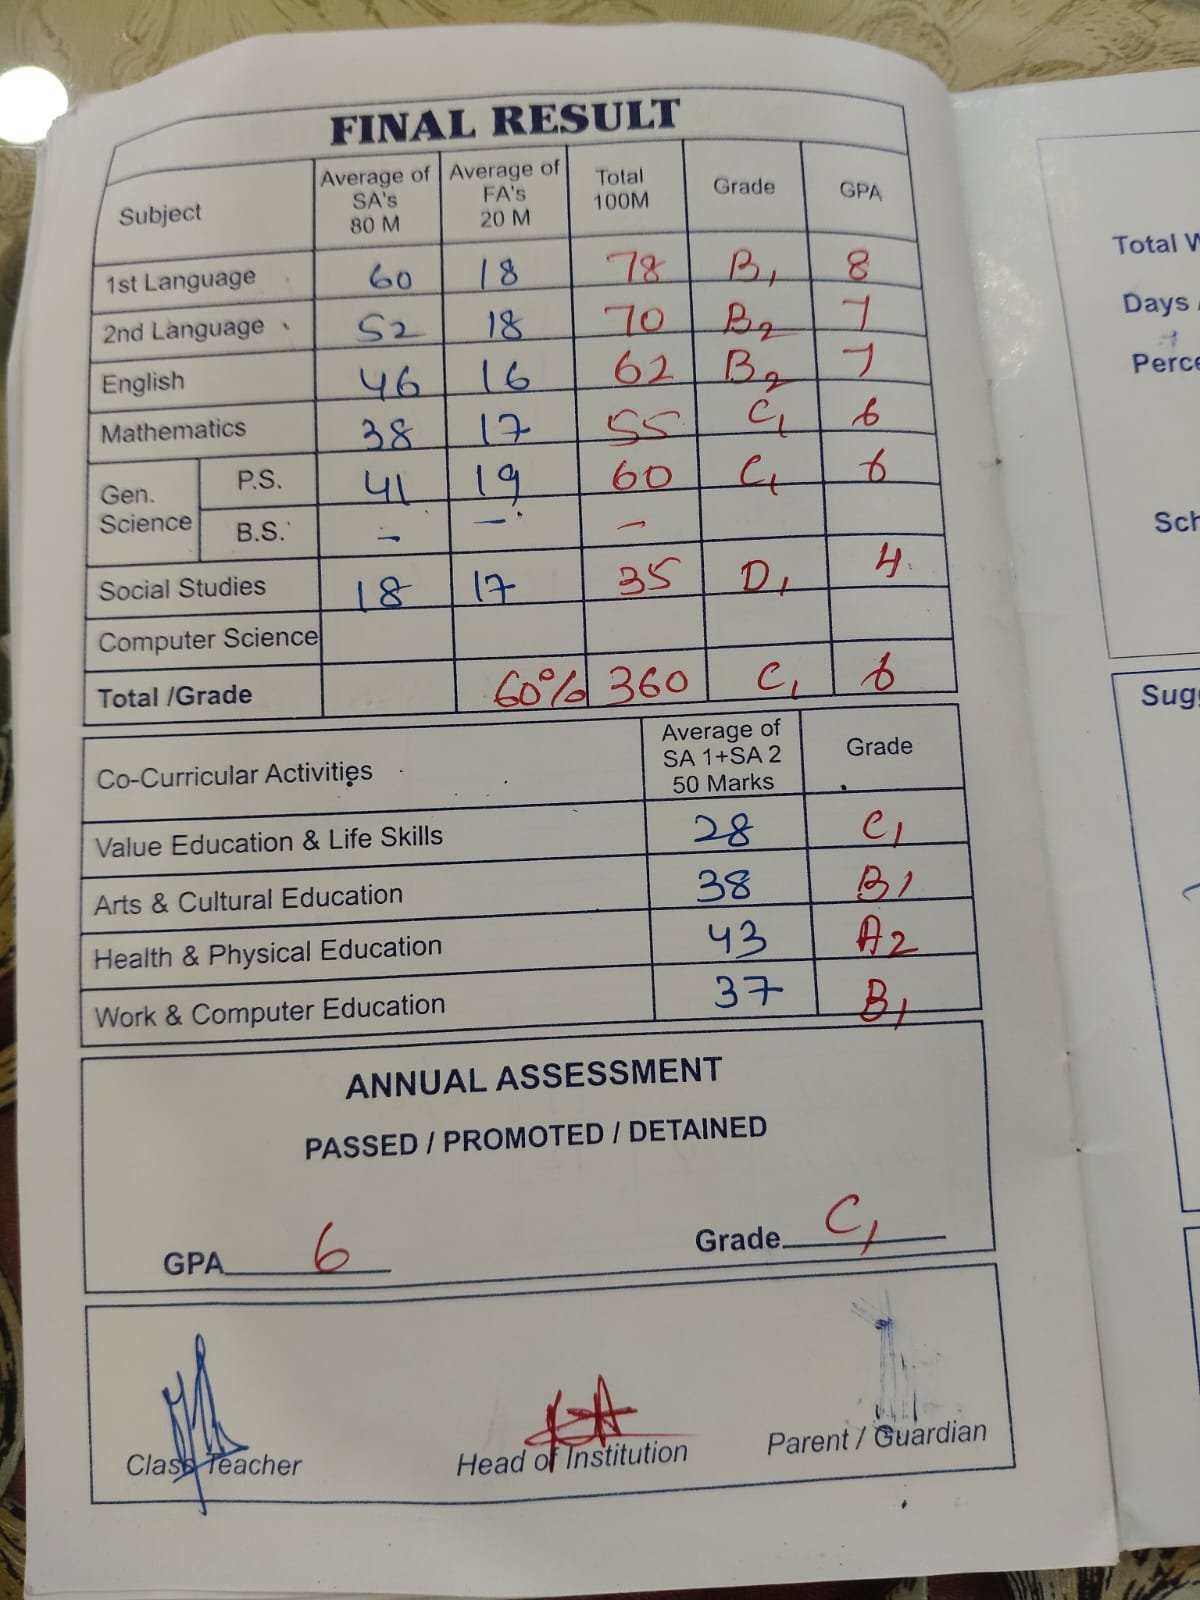 FINAL RESULT
Subject Average of SA's 80 M Average of FA's 20 M Total 100M Grade GPA
1st Language 60 18 78 B1 8
2nd Language 52 18 70 B2 7
English 46 16 62 B2 7
Mathematics 38 17 55 C1 6
Gen. Science P.S. 41 19 60 C1 6
B.S. - - -
Social Studies 18 17 35 D1 4
Computer Science
Total /Grade 60% 360 C1 6
Co-Curricular Activities Average of SA 1+SA 2 50 Marks Grade
Value Education & Life Skills 28 C1
Arts & Cultural Education 38 B1
Health & Physical Education 43 A2
Work & Computer Education 37 B1
ANNUAL ASSESSMENT
PASSED / PROMOTED / DETAINED
GPA 6 Grade C1
Class Teacher Head of Institution Parent / Guardian
Total
Days